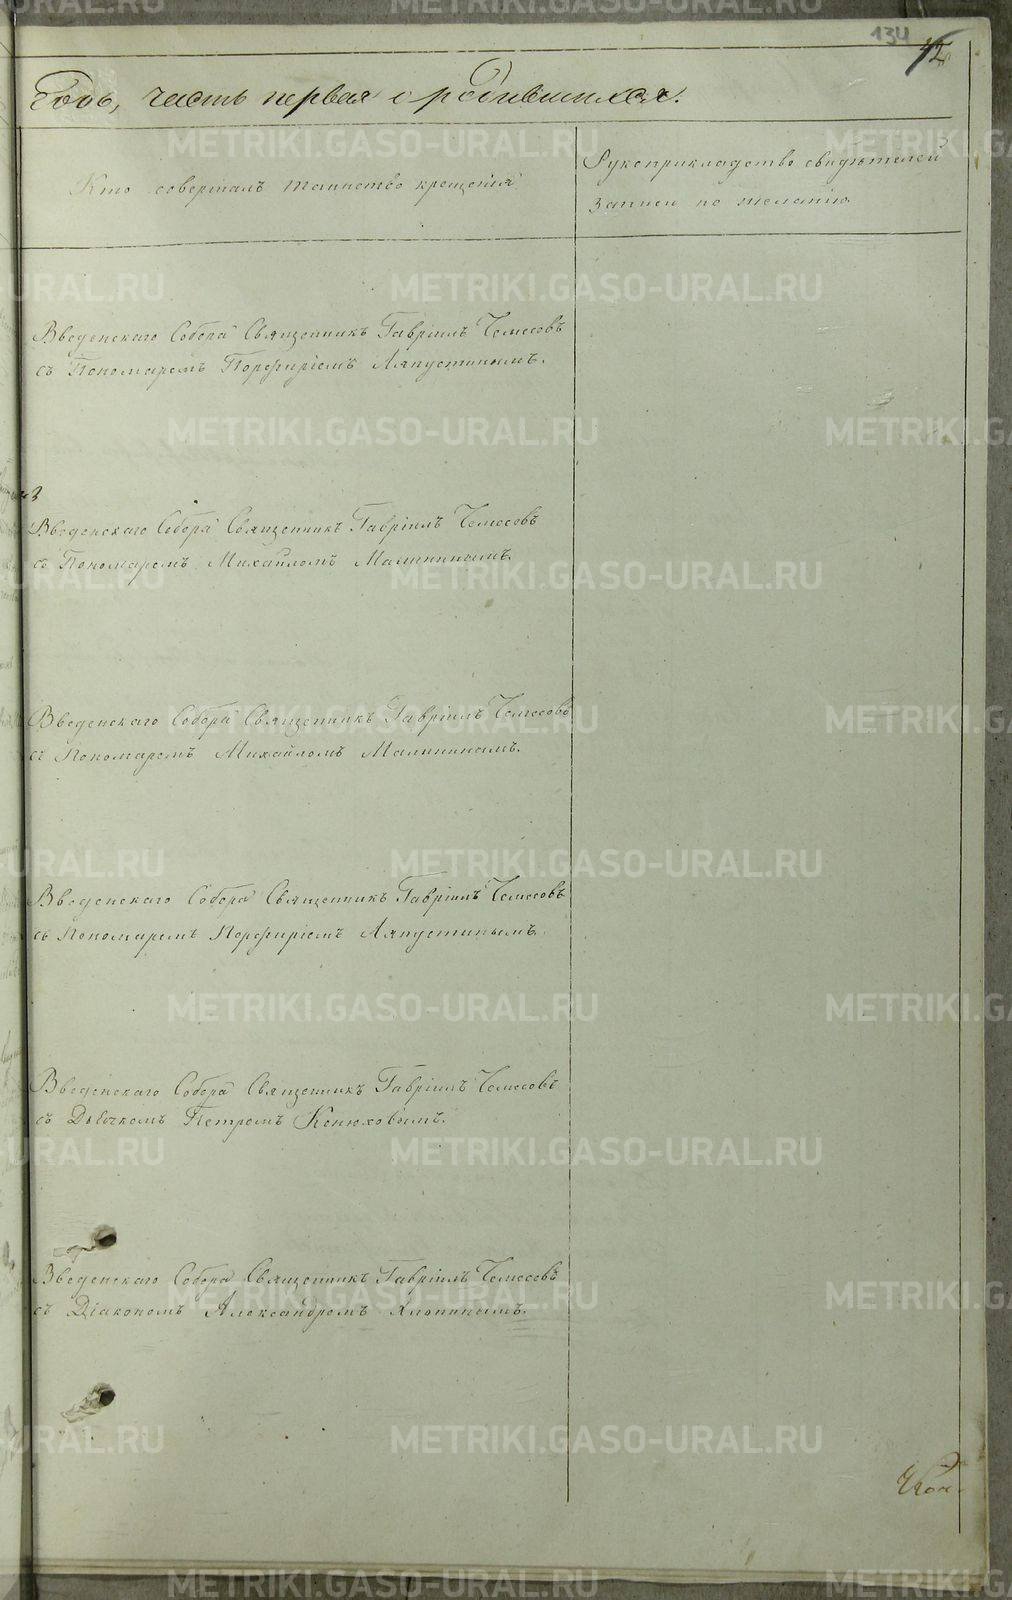 134
42
Годъ, часть первая о родившихся.
Кто совершалъ таинство крещенія
Рукоприкладство свидѣтелей
записи по желанію
Введенскаго Собора Священникъ Гавріилъ Чемесовъ
съ Пономаремъ Порфиріемъ Ляпустинымъ.
3
Введенскаго Собора Священникъ Гавріилъ Чемесовъ
съ Пономаремъ Михайломъ Малининымъ.
Введенскаго Собора Священникъ Гавріилъ Чемесовъ
съ Пономаремъ Михайломъ Малининымъ.
Введенскаго Собора Священникъ Гавріилъ Чемесовъ
съ Пономаремъ Порфиріемъ Ляпустинымъ.
Введенскаго Собора Священникъ Гавріилъ Чемесовъ
съ Дьячкомъ Петромъ Конюховымъ.
Введенскаго Собора Священникъ Гавріилъ Чемесовъ
съ Діакономъ Александромъ Хлопинымъ.
METRIKI.GASO-URAL.RU